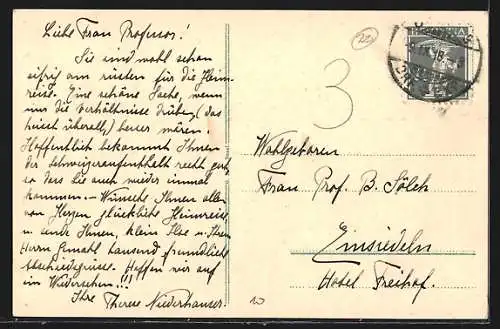 Liebe Frau Professor!
Sie sind wohl schon
eifrig am rüsten für die Heim-
reise. Eine schöne Sache, wenn
nur die Verhältnisse drüben, (das
heisst überall,) besser wären.
Hoffentlich bekommt Ihnen
der Schweizeraufenthalt recht gut,
so dass Sie auch wieder einmal
kommen. – Wünsche Ihnen allen
von Herzen glückliche Heimreise,
u. sende Ihnen, klein Ilse u. Ihrem
Herrn Gemahl tausend freundliche
Abschiedsgrüsse. Hoffen wir auf
ein Wiedersehen!!!
Ihre Therese Niederhauser.
22
3
HELVETIA
Wohlgeboren
Frau Prof. B. Sölch
Einsiedeln
Hotel Freihof.
10